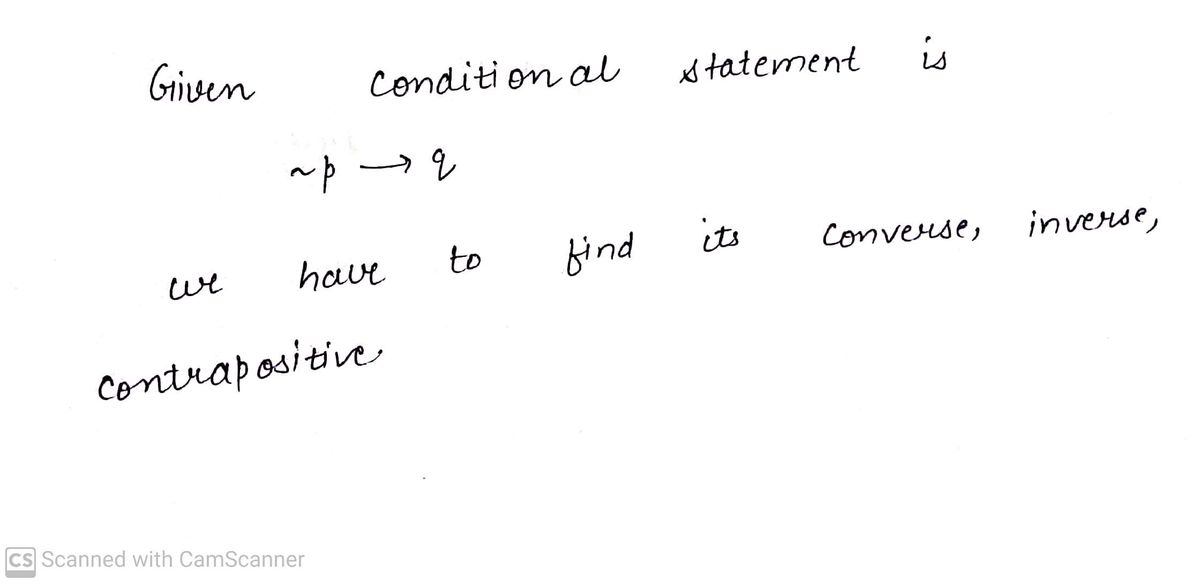 Given conditional statement is
~p → q
we have to find its converse, inverse,
contrapositive.
CS Scanned with CamScanner